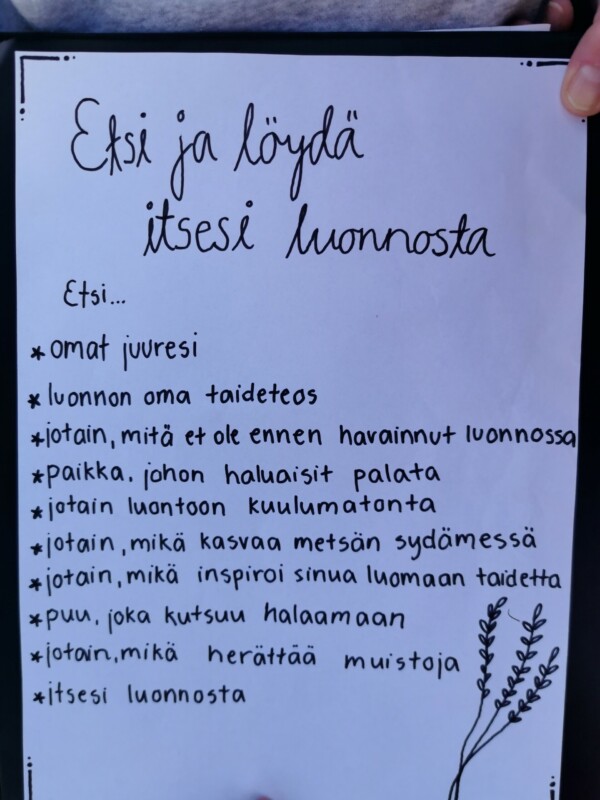 Etsi ja löydä
itsesi luonnosta
Etsi...
*omat juuresi
*luonnon oma taideteos
*jotain, mitä et ole ennen havainnut luonnossa
*paikka, johon haluaisit palata
*jotain luontoon kuulumatonta
*jotain, mikä kasvaa metsän sydämessä
*jotain, mikä inspiroi sinua luomaan taidetta
*puu, joka kutsuu halaamaan
*jotain, mikä herättää muistoja
*itsesi luonnosta